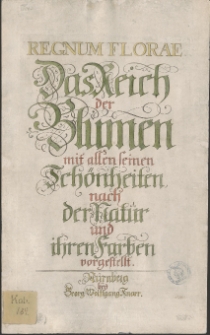 REGNUM FLORAE
Das Reich
der
Blumen
mit allen seinen
Schönheiten
nach
der Natur
und
ihren Farben
vorgestellt.
Nürnberg
bey
Georg Wolffgang Knorr.